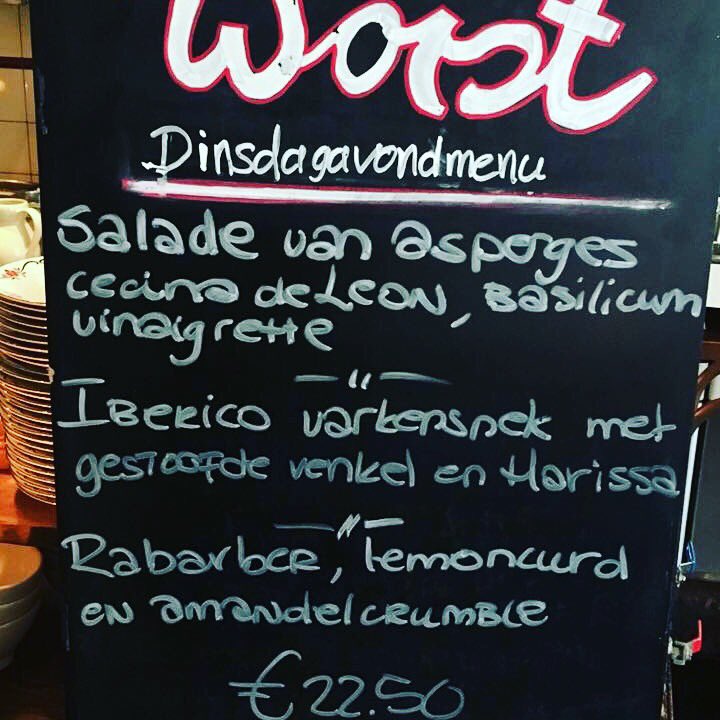 Worst
Dinsdagavondmenu
Salade van asperges
cecina de Leon, Basilicum
vinaigrette
Iberico varkensnek met
gestoofde venkel en Harissa
Rabarber, lemoncurd
en amandelcrumble
€22.50